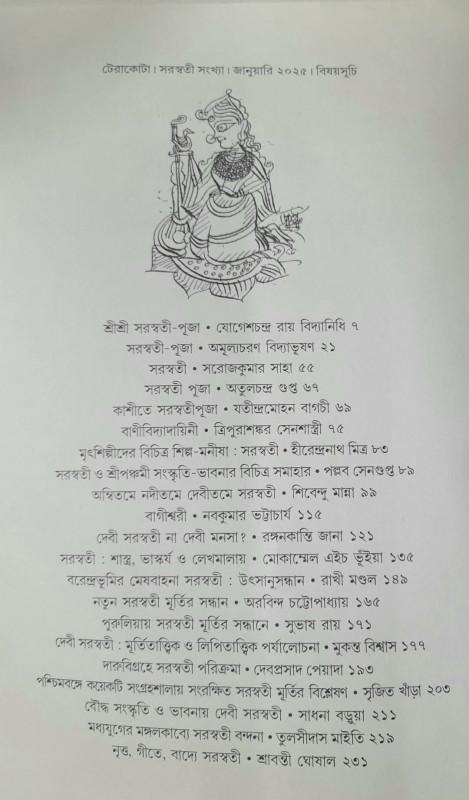 টেরাকোটা। সরস্বতী সংখ্যা। জানুয়ারি ২০২৫। বিষয়সূচি
শ্রীশ্রী সরস্বতী-পূজা • যোগেশচন্দ্র রায় বিদ্যানিধি ৭
সরস্বতী-পূজা • অমূল্যচরণ বিদ্যাভূষণ ২১
সরস্বতী • সরোজকুমার সাহা ৫৫
সরস্বতী পূজা • অতুলচন্দ্র গুপ্ত ৬৭
কাশীতে সরস্বতীপূজা • যতীন্দ্রমোহন বাগচী ৬৯
বাণীবিদ্যাদায়িনী • ত্রিপুরাশঙ্কর সেনশাস্ত্রী ৭৫
মৃৎশিল্পীদের বিচিত্র শিল্প-মনীষা : সরস্বতী • হীরেন্দ্রনাথ মিত্র ৮৩
সরস্বতী ও শ্রীপঞ্চমী সংস্কৃতি-ভাবনার বিচিত্র সমাহার • পল্লব সেনগুপ্ত ৮৯
অম্বিতমে নদীতমে দেবীতমে সরস্বতী • শিবেন্দু মান্না ৯৯
বাগীশ্বরী • নবকুমার ভট্টাচার্য ১১৫
দেবী সরস্বতী না দেবী মনসা? • রঙ্গনকান্তি জানা ১২১
সরস্বতী : শাস্ত্র, ভাস্কর্য ও লেখমালায় • মোকাম্মেল এইচ ভূঁইয়া ১৩৫
বরেন্দ্রভূমির মেষবাহনা সরস্বতী : উৎসানুসন্ধান • রাখী মণ্ডল ১৪৯
নতুন সরস্বতী মূর্তির সন্ধান • অরবিন্দ চট্টোপাধ্যায় ১৬৫
পুরুলিয়ায় সরস্বতী মূর্তির সন্ধানে • সুভাষ রায় ১৭১
দেবী সরস্বতী : মূর্তিতাত্ত্বিক ও লিপিতাত্ত্বিক পর্যালোচনা • মুকন্ত বিশ্বাস ১৭৭
দারুবিগ্রহে সরস্বতী পরিক্রমা • দেবপ্রসাদ পেয়াদা ১৯৩
পশ্চিমবঙ্গে কয়েকটি সংগ্রহশালায় সংরক্ষিত সরস্বতী মূর্তির বিশ্লেষণ • সৃজিত খাঁড়া ২০৩
বৌদ্ধ সংস্কৃতি ও ভাবনায় দেবী সরস্বতী • সাধনা বড়ুয়া ২১১
মধ্যযুগের মঙ্গলকাব্যে সরস্বতী বন্দনা • তুলসীদাস মাইতি ২১৯
নৃত্ত, গীতে, বাদ্যে সরস্বতী • শ্রাবন্তী ঘোষাল ২৩১